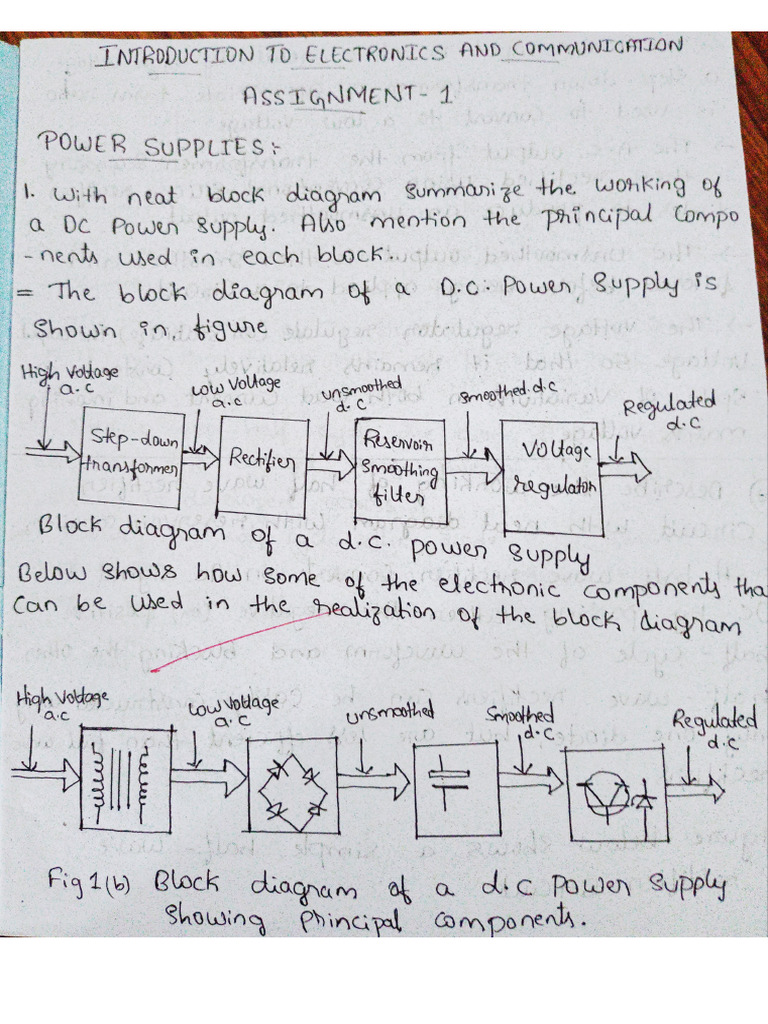 INTRODUCTION TO ELECTRONICS AND COMMUNICATION
ASSIGNMENT-1
POWER SUPPLIES:-
1. With neat block diagram summarize the working of
a DC Power Supply. Also mention the principal compo
-nents used in each block.
= The block diagram of a D.C. Power Supply is
Shown in figure
High Voltage
a.c
Low Voltage
a.c
unsmoothed
d.c
smoothed d.c
Regulated
d.c
Step-down
transformer
Rectifier
Reservoir
Smoothing
filter
Voltage
regulator
Block diagram of a d.c. power supply
Below shows how some of the electronic components tha
Can be used in the realization of the block diagram
High Voltage
a.c
Low Voltage
a.c
unsmoothed
Smoothed
d.c
Regulated
d.c
Fig 1(b) Block diagram of a d.c power supply
showing principal components.